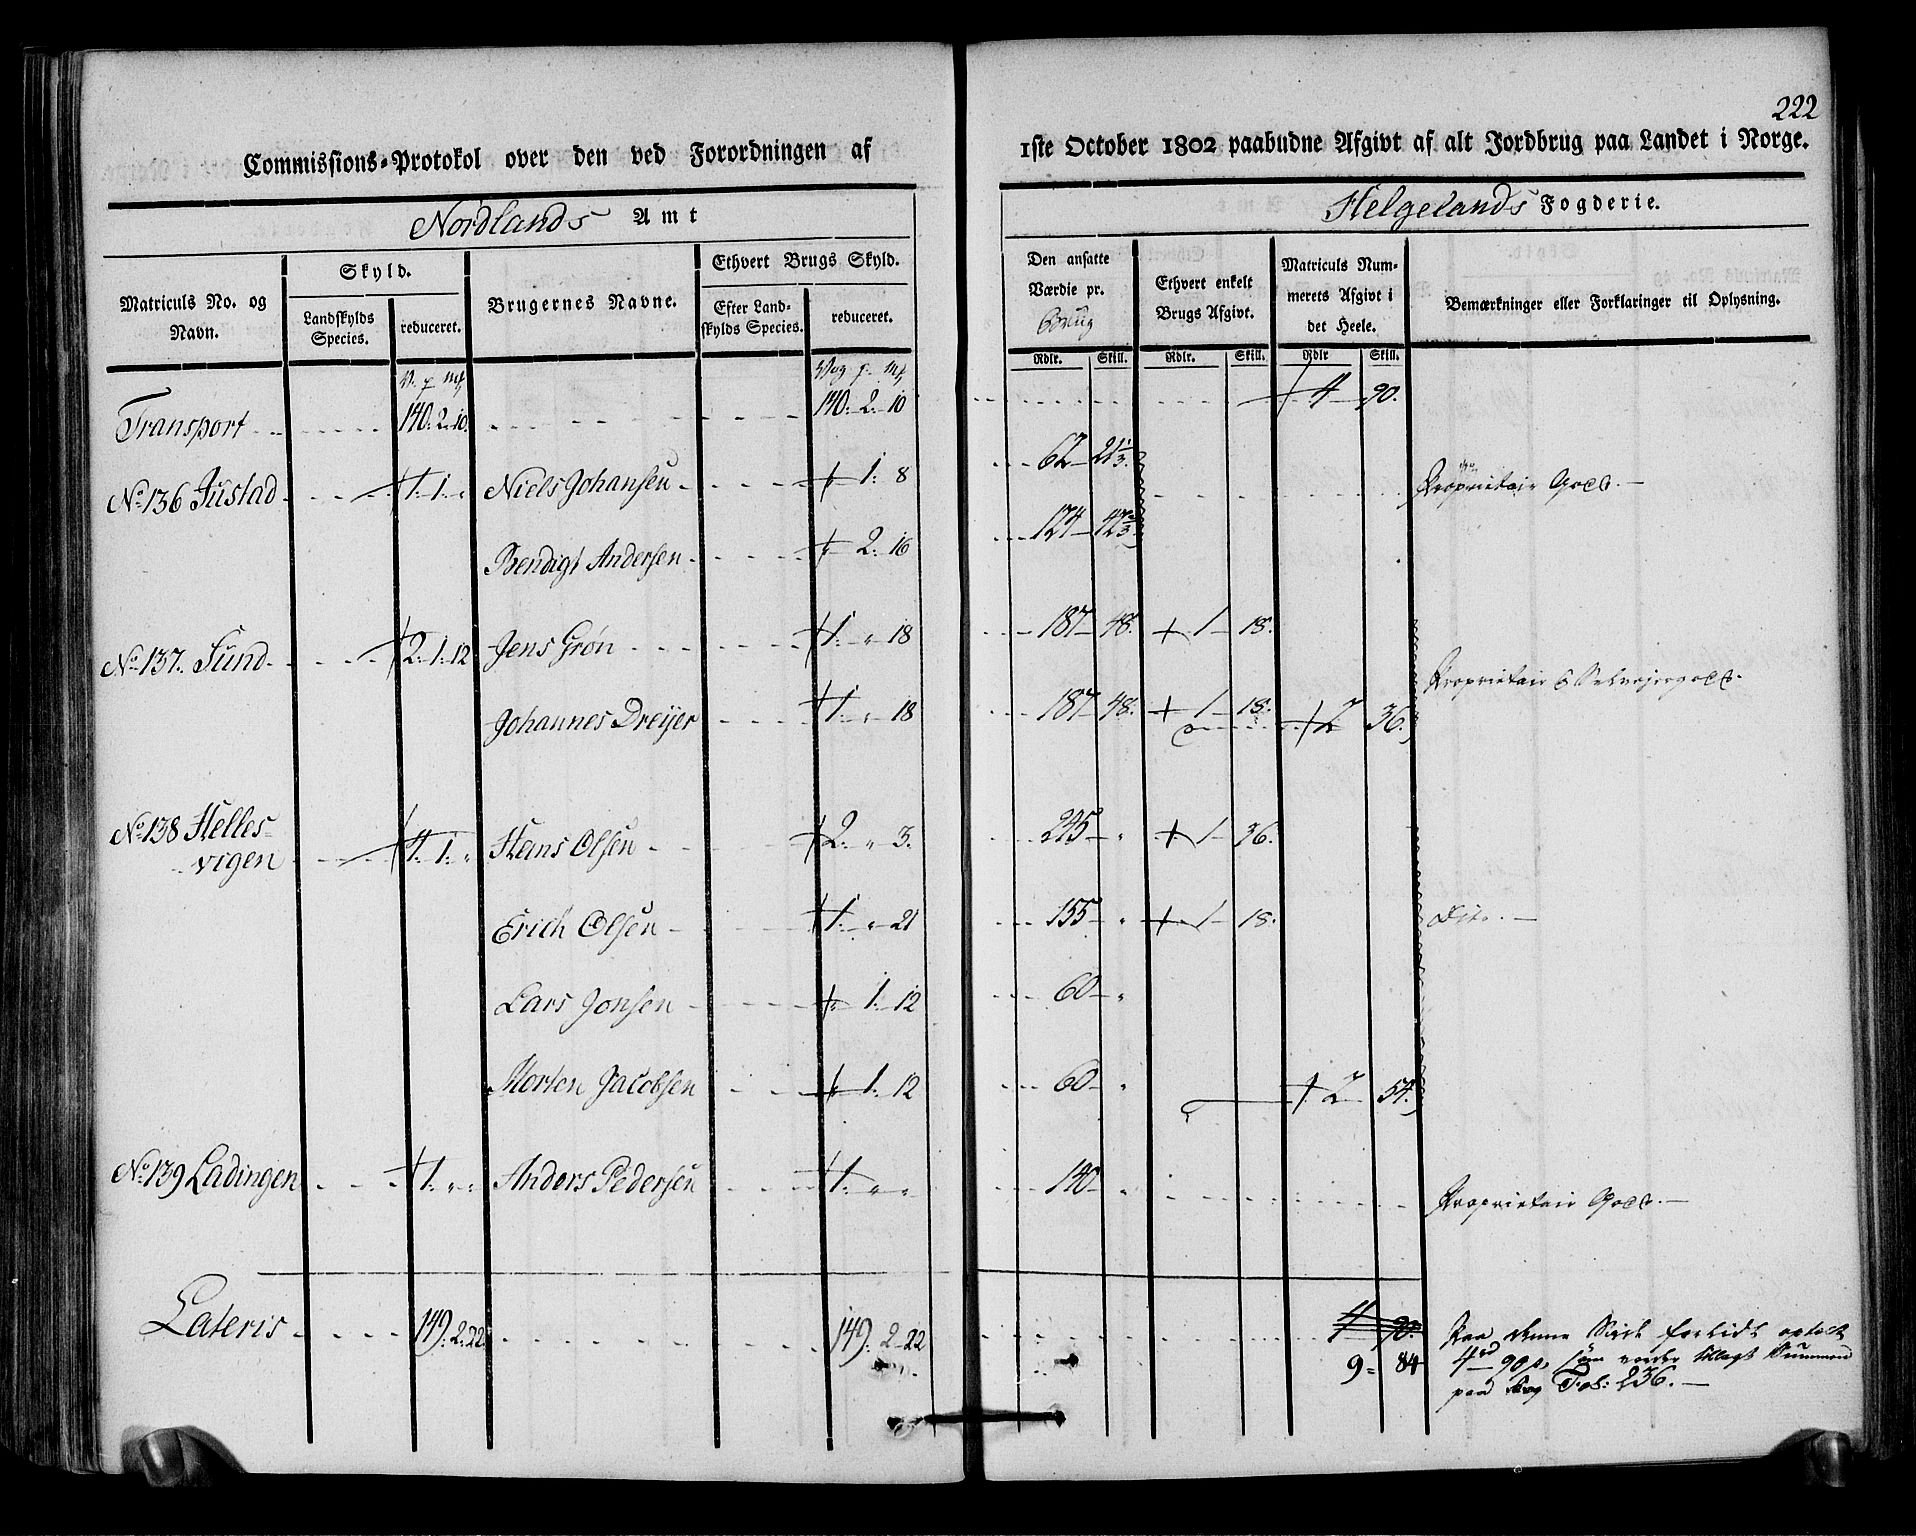 222
Commissions-Protokol over den ved Forordningen af 1ste October 1802 paabudne Afgivt af alt Jordbrug paa Landet i Norge.
Nordlands Amt
Helgelands Fogderie.
Matriculs No. og Navn.
Skyld.
Landskylds Species.
reduceret.
Brugernes Navne.
Ethvert Brugs Skyld.
Efter Landskylds Species.
reduceret.
Den ansatte Værdie pr.
Rdlr. Skill.
Ethvert enkelt Brugs Afgivt.
Rdlr. Skill.
Matriculs Nummerets Afgivt i det Heele.
Rdlr Skill.
Bemærkninger eller Forklaringer til Oplysning.
V. p mk
Vog p. mk
Transport 140. 2. 10. 140. 2. 10 4 90.
No. 136 Justad 1. 1. „ Niels Johansen „ 1. 8 62 21 1/3. Proprietair Gods.
Bendigt Andersen „ 2. 16 124 42 2/3
No. 137. Sund 2. 1. 12 Jens Grøn 1. „ 18 187 48. 1 18. Proprietair & Selvejergods.
Johannes Dreijer 1. „ 18 187 48. 1 18. 2 36.
No. 138 Hellesvigen 4. 1. „ Hans Olsen 2. „ 3. 245 „ 1 36.
Erich Olsen 1. „ 21 155 „ 1 18. Dito.
Lars Jonsen „ 1. 12 60 „
Morten Jacobsen „ 1. 12 60 „ 2 54.
No. 139 Ladingen 1. „ „ Anders Pedersen 1. „ „ 140 „ Proprietair Gods.
Lateris 149. 2. 22. 149. 2. 22 4 90.
9 = 84
Paa denne Side forlidt optalt
4 rd 90 s. som vorder tillagt Summen
paa Pag Fol: 236.